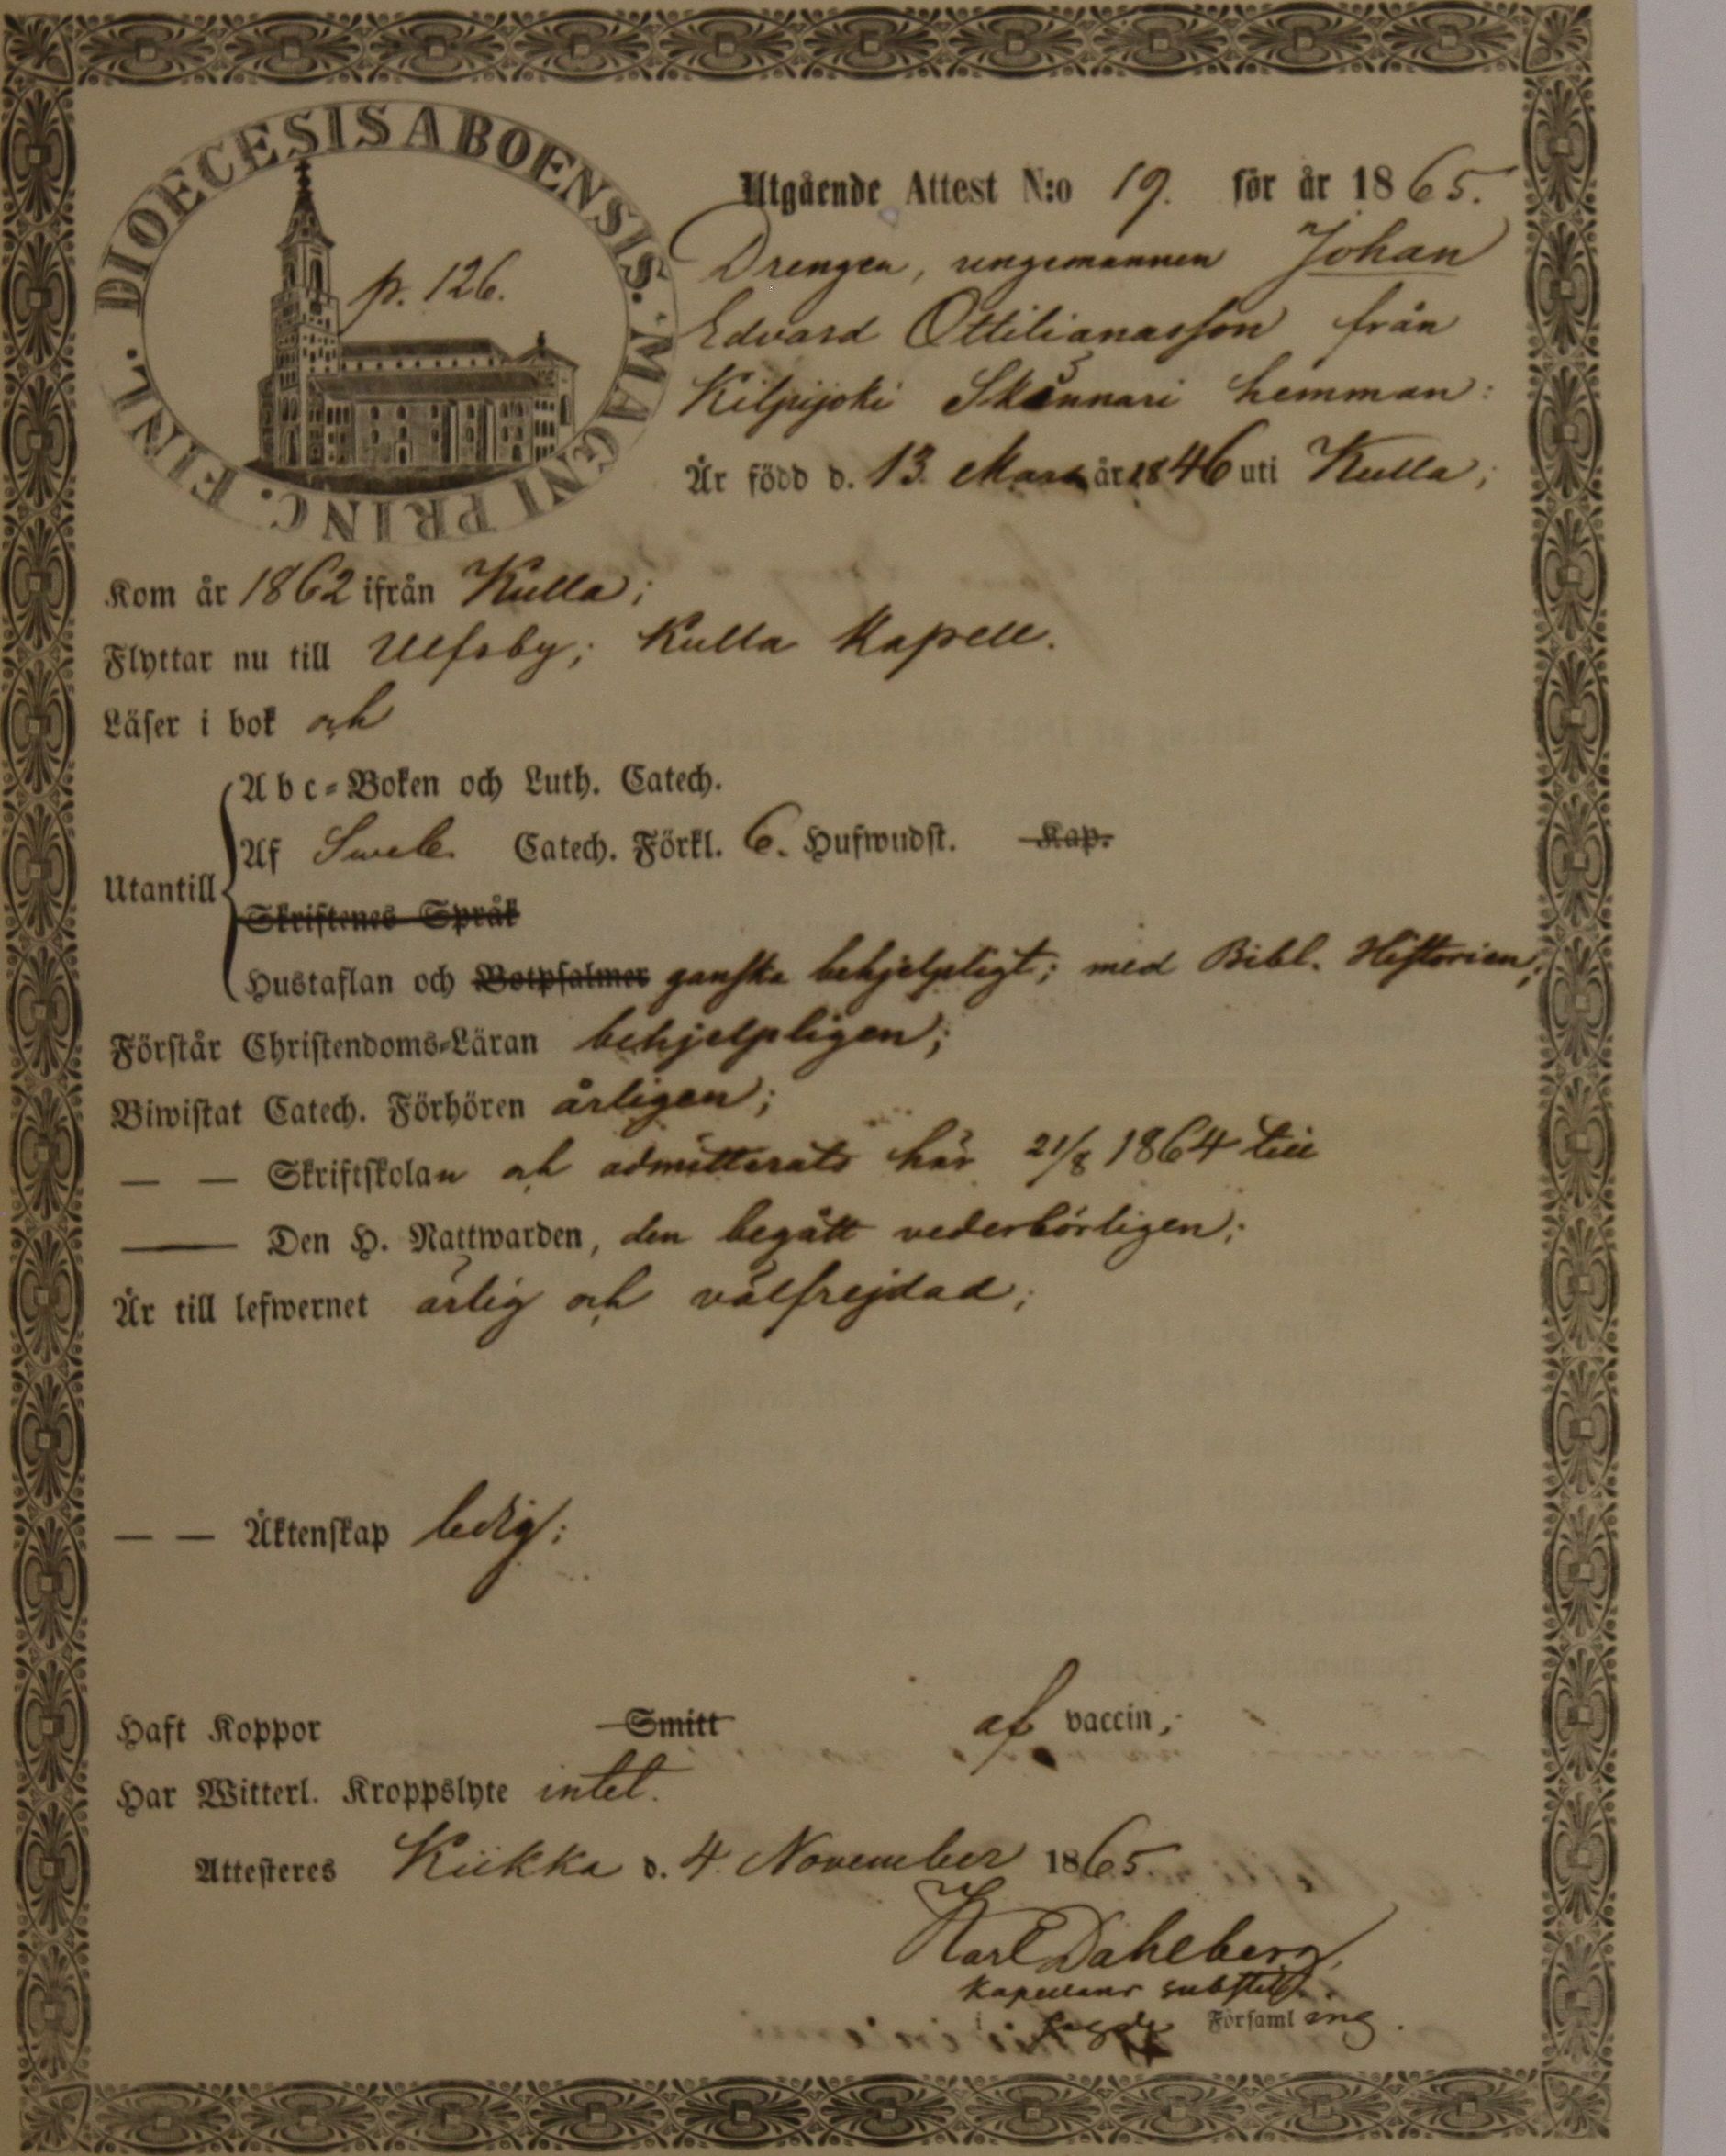 DIOECESIS ABOENSIS. MAGNI PRINC. FINL.
p. 126.
Utgående Attest N:o 19. för år 1865.
Drengen, ungemannen Johan
Edvard Ottilianasson från
Kilpijoki Skånnari hemman:
Är född d. 13 Mars år 1846 uti Kulla;
Kom år 1862 ifrån Kulla;
Flyttar nu till Ulfsby; Kulla Kapell.
Läser i bok och
Utantill
Abc-Boken och Luth. Catech.
Af Sweb. Catech. Förkl. 6. Hufwudst. Kap.
Skriftenes Språk
Hustaflan och Botpsalmer ganska behjelpligt; med Bibl. Historien;
Förstår Christendoms-Läran behjelpligen;
Biwistat Catech. Förhören årligen;
— — Skriftskolan och admitterats här 21/8 1864 till
— Den H. Nattwarden, den begått vederbörligen;
Är till lefwernet ärlig och välfrejdad;
— — Äktenskap ledig;
Haft Koppor Smitt af vaccin;
Har Witterl. Kroppslyte intet.
Attesteres Kiikka d. 4. November 1865.
Karl Dahlberg,
Kapellans substit.
i Församling.